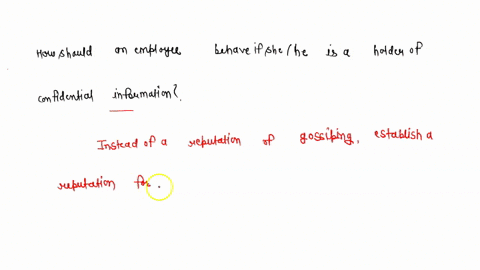 How should an employee behave if, she/he is a holder of
confidential information?.
Instead of a reputation of gossiping, establish a
reputation for.